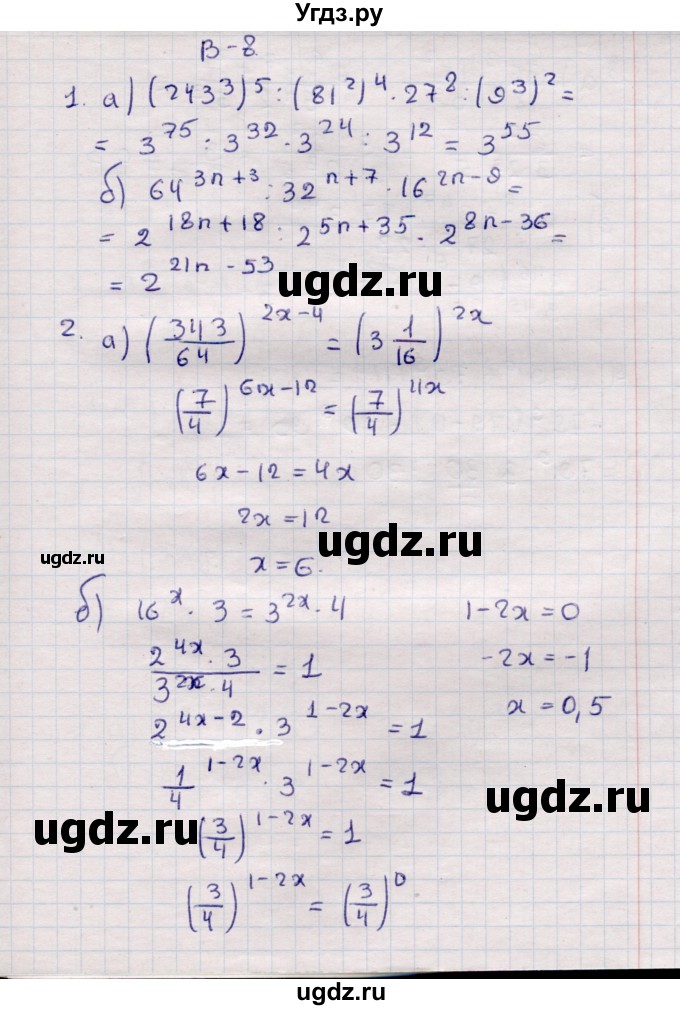 Угдз.ру
В-8
1. а) (243³)⁵ : (81²)⁴ · 27⁸ : (9³)² =
= 3⁷⁵ : 3³² · 3²⁴ : 3¹² = 3⁵⁵
б) 64^(3n+3) : 32^(n+7) · 16^(2n-9) =
= 2^(18n+18) : 2^(5n+35) · 2^(8n-36) =
= 2^(21n-53)
ugdz.ru
2. а) (343/64)^(2x-4) = (3 1/16)^(2x)
(7/4)^(6x-12) = (7/4)^(4x)
6x-12=4x
2x=12
ugdz.ru
ugdz.ru
x=6.
б) 16^x · 3 = 3^(2x) · 4
(2^(4x) · 3)/(3^(2x) · 4) = 1
2^(4x-2) · 3^(1-2x) = 1
1/4^(1-2x) · 3^(1-2x) = 1
(3/4)^(1-2x) = 1
(3/4)^(1-2x) = (3/4)^0
1-2x=0
-2x=-1
x=0,5
ugdz.ru
ugdz.ru
ugdz.ru
ugdz.ru